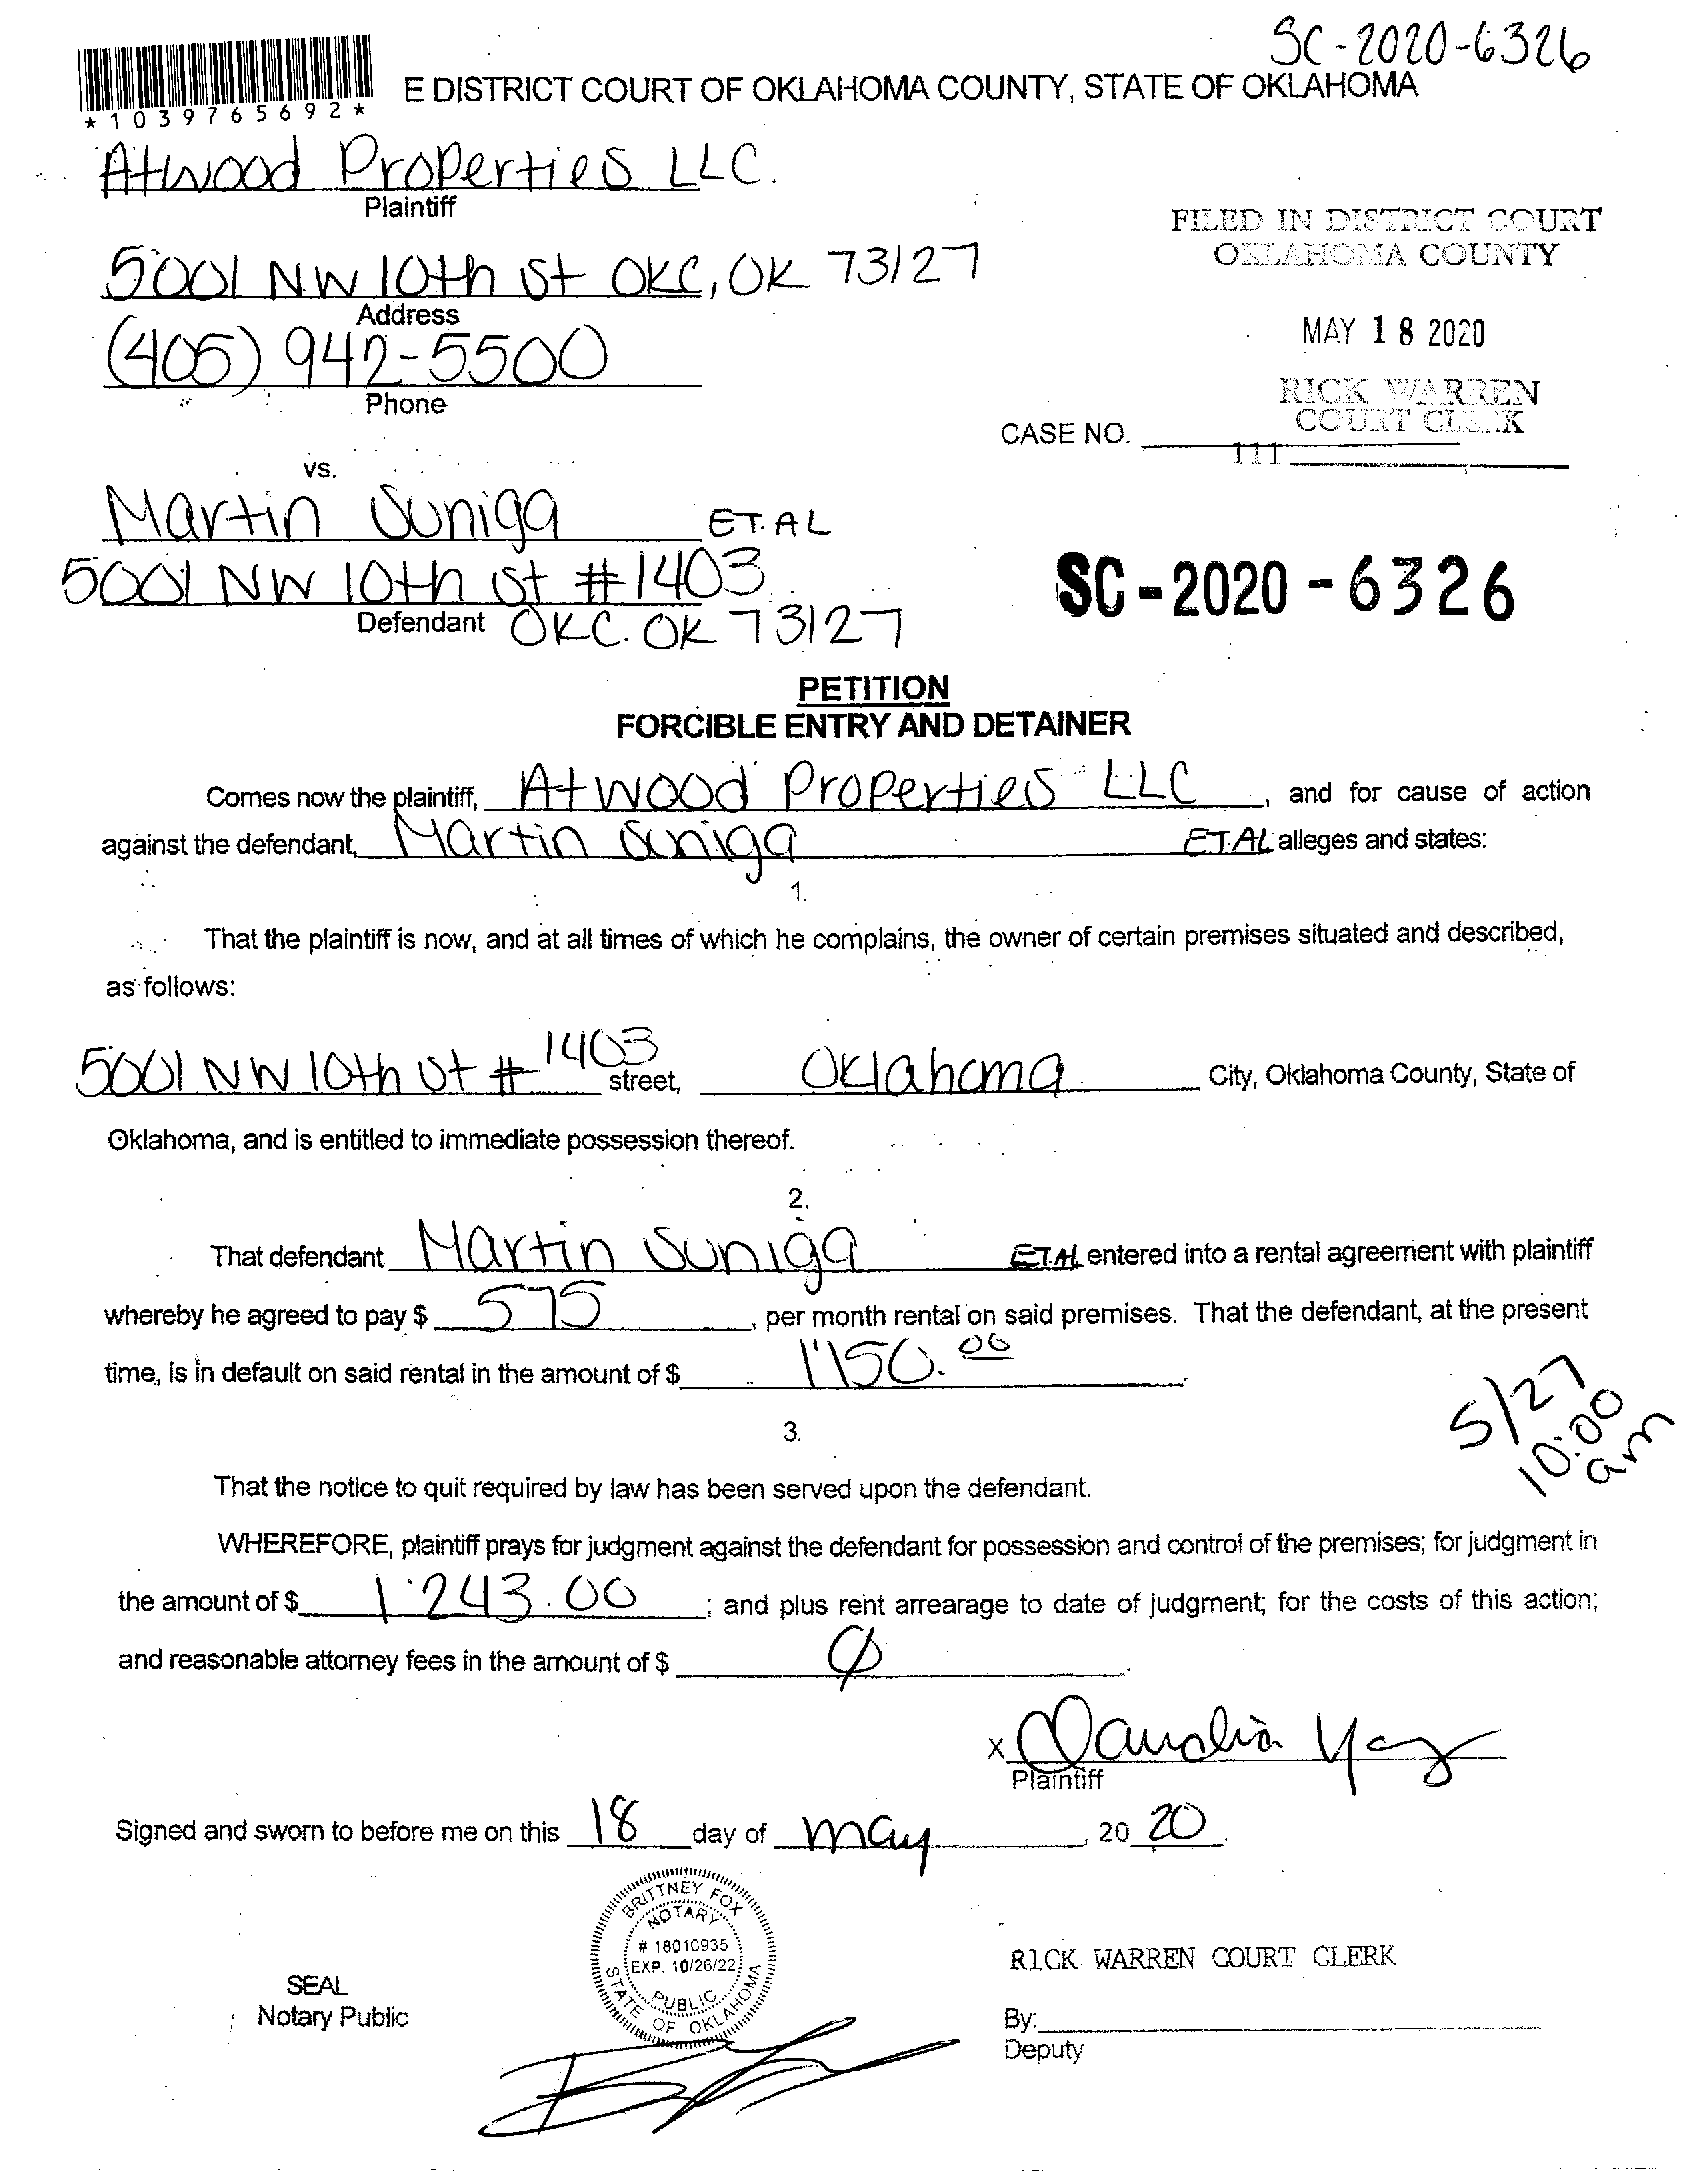 SC-2020-6326
E DISTRICT COURT OF OKLAHOMA COUNTY, STATE OF OKLAHOMA
*1039765692*
Atwood Properties LLC.
Plaintiff
FILED IN DISTRICT COURT
OKLAHOMA COUNTY
5001 NW 10th St OKC, OK 73127
Address
MAY 18 2020
(405) 942-5500
Phone
RICK WARREN
COURT CLERK
CASE NO.
111
vs.
Martin Suniga ET.AL
5001 NW 10th St #1403
Defendant OKC. OK 73127
SC-2020-6326
PETITION
FORCIBLE ENTRY AND DETAINER
Comes now the plaintiff, Atwood Properties LLC, and for cause of action
against the defendant, Martin Suniga ET.AL alleges and states:
1.
That the plaintiff is now, and at all times of which he complains, the owner of certain premises situated and described,
as follows:
5001 NW 10th St # 1403 street, Oklahoma City, Oklahoma County, State of
Oklahoma, and is entitled to immediate possession thereof.
2.
That defendant Martin Suniga ET.AL entered into a rental agreement with plaintiff
whereby he agreed to pay $ 575, per month rental on said premises. That the defendant, at the present
time, is in default on said rental in the amount of $ 1'150.00
5/27
10:00
am
3.
That the notice to quit required by law has been served upon the defendant.
WHEREFORE, plaintiff prays for judgment against the defendant for possession and control of the premises; for judgment in
the amount of $ 1'243.00; and plus rent arrearage to date of judgment; for the costs of this action;
and reasonable attorney fees in the amount of $ Ø.
x Claudia
Plaintiff
Signed and sworn to before me on this 18 day of may, 20 20.
BRITTNEY FOX
NOTARY
# 18010935
EXP. 10/26/22
PUBLIC
STATE OF OKLAHOMA
RICK WARREN COURT CLERK
SEAL
Notary Public
By:
Deputy